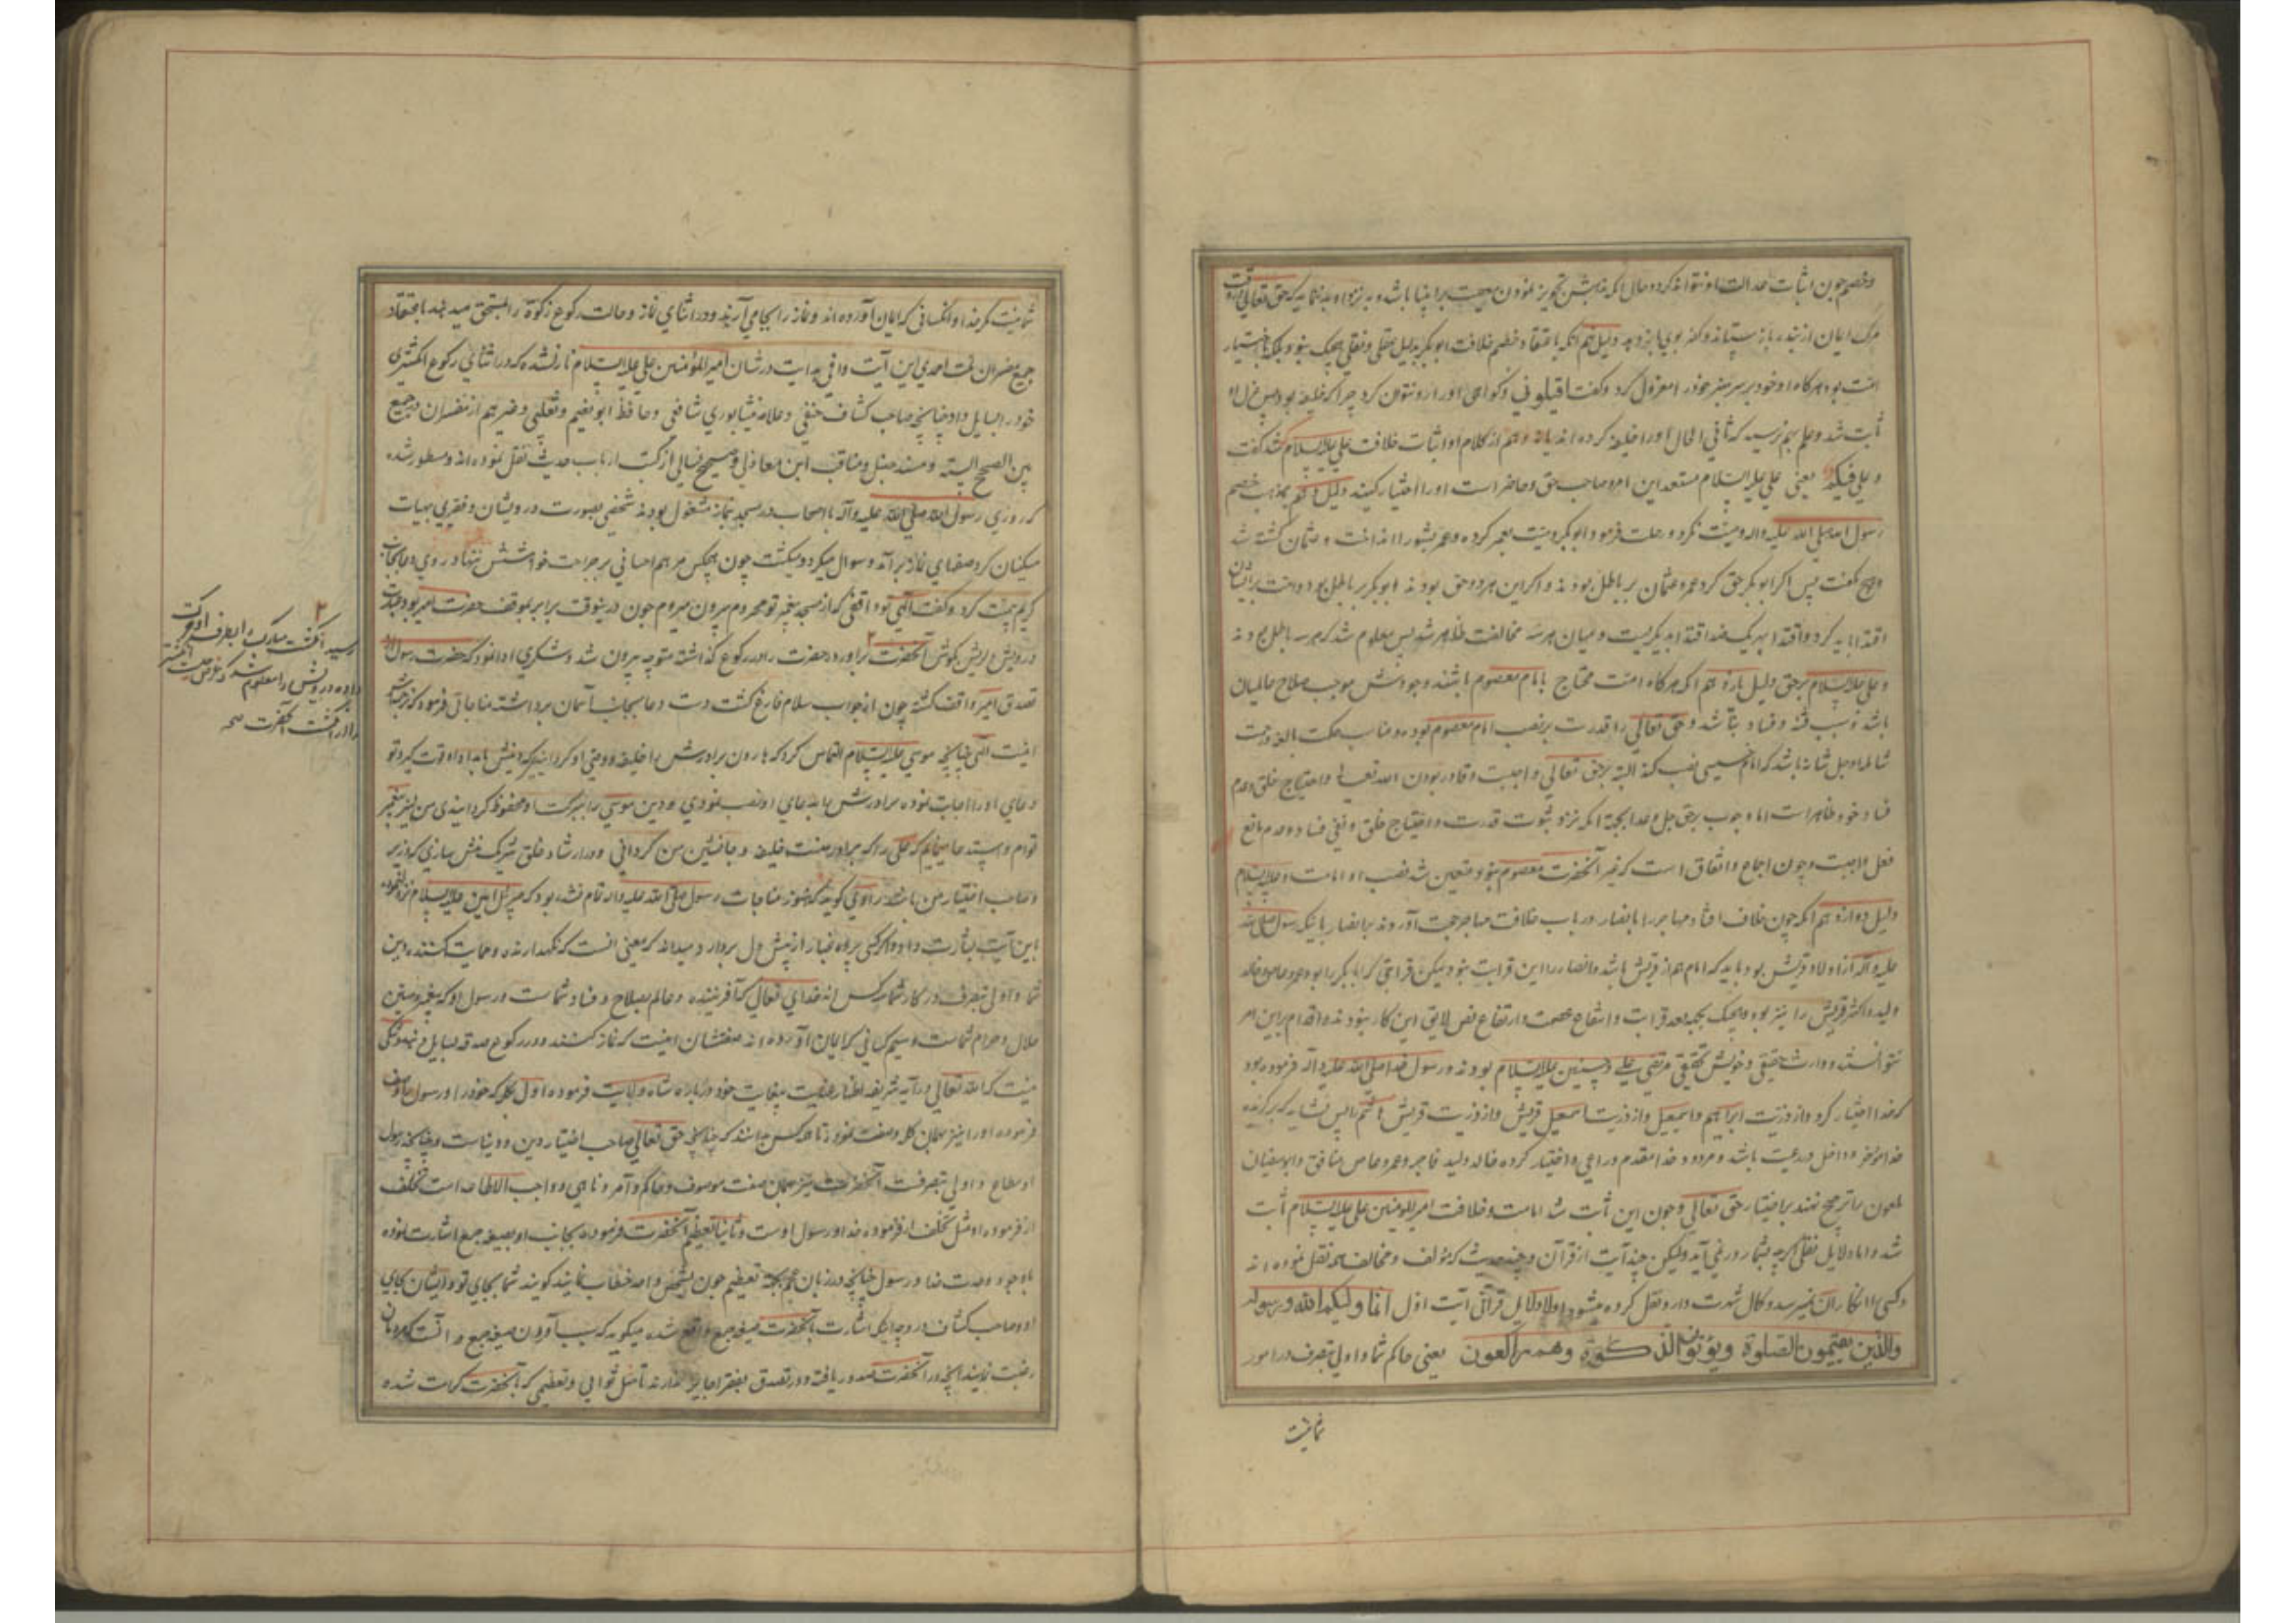 وخصم چون اثبات عدالت او نتواند کرد و حال آنکه مذهبش تجویز نمودن معصیت بر انبیا باشد و به نزد او بد نماید که حق تعالی در وقت
مرک ایمان از بنده باز ستاند و کفر بوی باز دهد دلیل نهم آنکه باعتقاد خصم خلافت ابوبکر بدلیل عقلی و نقلی هیچیک نبود بلکه باختیار
امت بود هرکاه او خود بر سر منبر خود را معزول کرد و گفت اقیلونی و کواهی او را رد نتوان کرد چرا که خلیفه بود پس عزل او
ثابت شد و علم بهم نرسید که ثانی الحال او را خلیفه کرده اند یا نه و هم از کلام او اثبات خلافت علی علیه السلام شد که گفت
و علی فیکم یعنی علی علیه السلام مستعد این امر و صاحب حق و حاضر است او را اختیار کنید دلیل دهم بمذهب خصم
رسول الله صلی الله علیه واله وصیت نکرد و رحلت فرمود و ابوبکر وصیت بعمر کرده و عمر بشورا انداخت و عثمان کشته شد
و هیچ نکفت پس اکر ابوبکر حق کرد عمر و عثمان بر باطل بودند و اکر این هر دو حق بودند ابوبکر بر باطل بود و امت را بایشان
اقتدا باید کرد و اقتدا بهر یک ضد اقتدا بدیکریست و میان هر سه مخالفت ظاهر شد پس معلوم شد که هر سه باطل بودند
و علی علیه السلام بر حق دلیل یازدهم آنکه هرکاه امت محتاج بامام معصوم باشند و وجودش موجب صلاح عالمیان
باشد نه سبب فتنه و فساد باشد و حق تعالی را قدرت بر نصب امام معصوم بود و مناسب حکمت
شامله او جل شانه باشد که امام نصب کند البته بر حق تعالی واجبست و قادر بودن الله تعالی و احتیاج خلق و عدم
فساد خود ظاهر است اما وجوب بر حق جل و علا بجهة آنکه نزد ثبوت قدرت و احتیاج خلق و نفی فساد و عدم مانع
فعل واجبست و چون اجماع و اتفاق است که غیر آنحضرت معصوم نبود متعین شد نصب او و امامت او علیه السلام
دلیل دوازدهم آنکه چون خلاف افتاد مهاجر را با انصار در باب خلافت مهاجر حجت آوردند بر انصار باینکه رسول صلی الله
علیه وآله از اولاد قریش بود باید که امام هم از قریش باشد و انصار را این قرابت نبود لیکن قرابتی که ابابکر را بود عمرو عاص و خالد
ولید و اکثر قریش را نیز بود و هیچیک بجهة بعد قرابت و انتفاع عصمت و ارتفاع نص لایق این کار نبودند و اقدام بر این امر
نتوانستند و وارث حقیقی و خویش تحقیقی مرتضی علی و حسنین علیه السلام بودند و رسول خدا صلی الله علیه وآله فرموده بود
که خدا اختیار کرد و از ذریت ابراهیم و اسمعیل و از ذریت اسمعیل قریش و از ذریت قریش هاشم را پس نشاید که برکزیده
خدا مؤخر و داخل رعیت باشد و مردود خدا مقدم و راعی و اختیار کرده خالد ولید فاجر و عمرو عاص منافق و ابوسفیان
ملعون را ترجیح نهند بر اختیار حق تعالی و چون این ثابت شد امامت و خلافت امیرالمؤمنین علی علیه السلام ثابت
شد و اما دلایل نقلی اکرچه بشمار در نمی آید ولیکن چند آیت از قرآن و چند حدیث که مؤلف و مخالف همه نقل نموده اند
و کسی را انکار آن نمیرسد و کمال شهرت دارد نقل کرده میشود اولا دلایل قرآنی آیت اول انما ولیکم الله ورسوله
والذین یقیمون الصلوة ویؤتون الزکوة وهم راکعون یعنی حاکم شما و اولی بتصرف در امور
شما نیست
شما نیست مکر خدا و آنکسانی که ایمان آورده اند و نماز را بجا می آرند و در اثنای نماز و حالت رکوع زکوة را بمستحق میدهند باعتقاد
جمیع مفسران امت احمدی این آیت وافی هدایت در شان امیرالمؤمنین علی علیه السلام نازل شده که در اثنای رکوع انکشتری
خود را بسایل داد چنانچه صاحب کشاف حنفی و علامه نیشابوری شافعی و حافظ ابونعیم و ثعلبی و غیرهم از مفسران و جمع
بین الصحاح الستة و مسند حنبل و مناقب ابن مغازلی و صحیح نسائی از کتب ارباب حدیث نقل نموده اند و مسطور شده
که روزی رسول الله صلی الله علیه وآله با اصحاب در مسجد بنماز مشغول بودند شخصی بصورت درویشان و فقیری بهیأت
مسکینان کرد صفهای نماز بر آمد و سوال میکرد و میکشت چون هیچکس مرهم احسانی بر جراحت خواهشش ننهاد روی دعا بجانب
کریم بیمنت کرد و گفت الهی تو واقفی که از مسجد پیغمبر تو محروم بیرون میروم چون درینوقت برابر بموقف حضرت امیر بود
درویش دلریش بکوش آنحضرت ۲ برآورد حضرت را در رکوع گذاشته متوجه بیرون شد و شکری ادا نمود که حضرت رسول از
تصدق امیر واقف کشته چون از جواب سلام فارغ کشت دست دعا بجانب آسمان برداشته مناجاتی فرمود که ترجمه اش
اینست الهی چنانچه موسی علیه السلام التماس کرد که هارون برادرش را خلیفه و وصی او کردانی که دینش بامداد او قوت کیرد تو
دعای او را اجابت نموده برادرش را بجای او نصب نمودی و دین موسی را ببرکت او محفوظ کردانیدی من نیز پیغمبر
توام و استدعا مینمایم که علی را که برادر منست خلیفه و جانشین من کردانی و در ارشاد خلق شریک منش سازی که وزیر
و صاحب اختیار من باشد راوی کوید که هنوز مناجات رسول صلی الله علیه واله تمام نشده بود که جبرئیل امین علیه السلام نزول نموده
باین آیت بشارت داد و اکر کسی پرده غبار از پیش دل بردارد میداند که معنی انست که نکهدارنده و حمایت کننده دین
شما و اولی بتصرف در کار شما سه کس اند خدای تعالی که آفریننده و عالم بصلاح و فساد شماست و رسول او که پیغمبر و مبین
حلال و حرام شماست و سیم کسانی که ایمان آورده اند صفتشان اینست که نماز کنند و در رکوع صدقه بسایل دهند و شکی
نیست که الله تعالی در آیه شریفه اظهار عنایت بیغایت خود درباره شاه ولایت فرموده اول بکلمه که خود را و رسول را وصف
فرموده او را نیز بهمان کلمه وصف نمود تا همه کس بدانند که چنانچه حق تعالی صاحب اختیار دین و دنیاست و چنانچه رسول
او مطاع و اولی بتصرفست آنحضرت نیز بهمان صفت موصوف و حاکم و آمر و ناهی و واجب الاطاعه است تخلف
از فرموده او مثل تخلف از فرموده خدا و رسول اوست و ثانیا تعظیم آنحضرت فرموده بجانب او بصیغه جمع اشارت نموده
با وجود وحدت خدا و رسول چنانچه در زبان عجم بجهة تعظیم چون بشخص واحد خطاب نمایند کویند شما بجای تو و ایشان بجای
او و صاحب کشاف در وجه اینکه اشارت بآنحضرت بصیغه جمع واقع شده میکوید که سبب آوردن صیغه جمع آنست که مردمان
رغبت نمایند آنچه از آنحضرت صدور یافت و در تصدق بفقرا جایز ندارند تا مثل ثوابی و تعظیمی که بآنحضرت کرامت شده
۲
رسید انکشت مبارک را بطرف او حرکت
داده درویش را معلوم شد که غرض انکشتر
را از انکشت آنحضرت صح